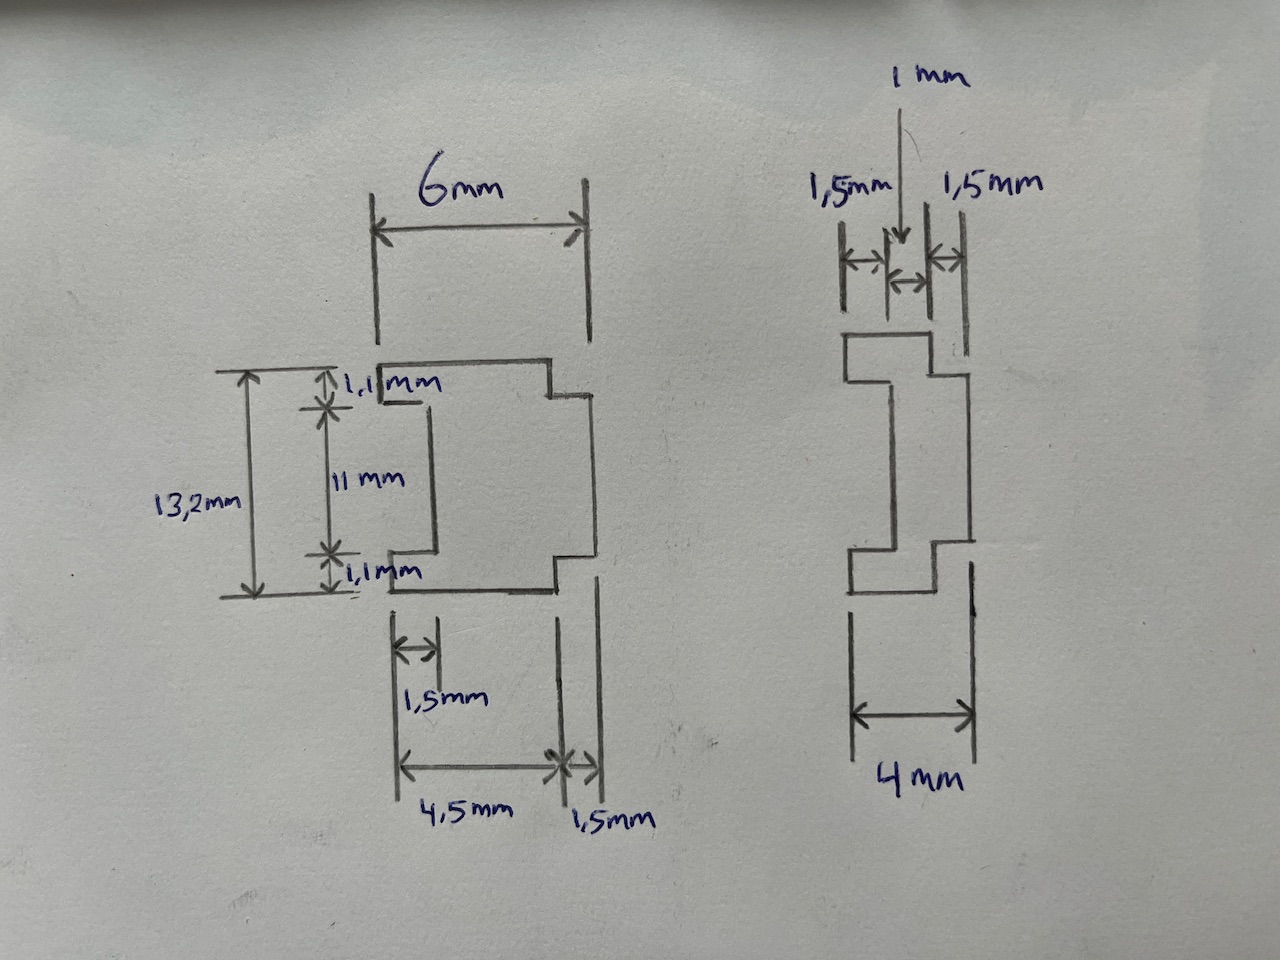 1 mm
6mm
1,5mm
1,5mm
1,1mm
11 mm
13,2mm
1,1mm
1,5mm
4,5mm
1,5mm
4mm